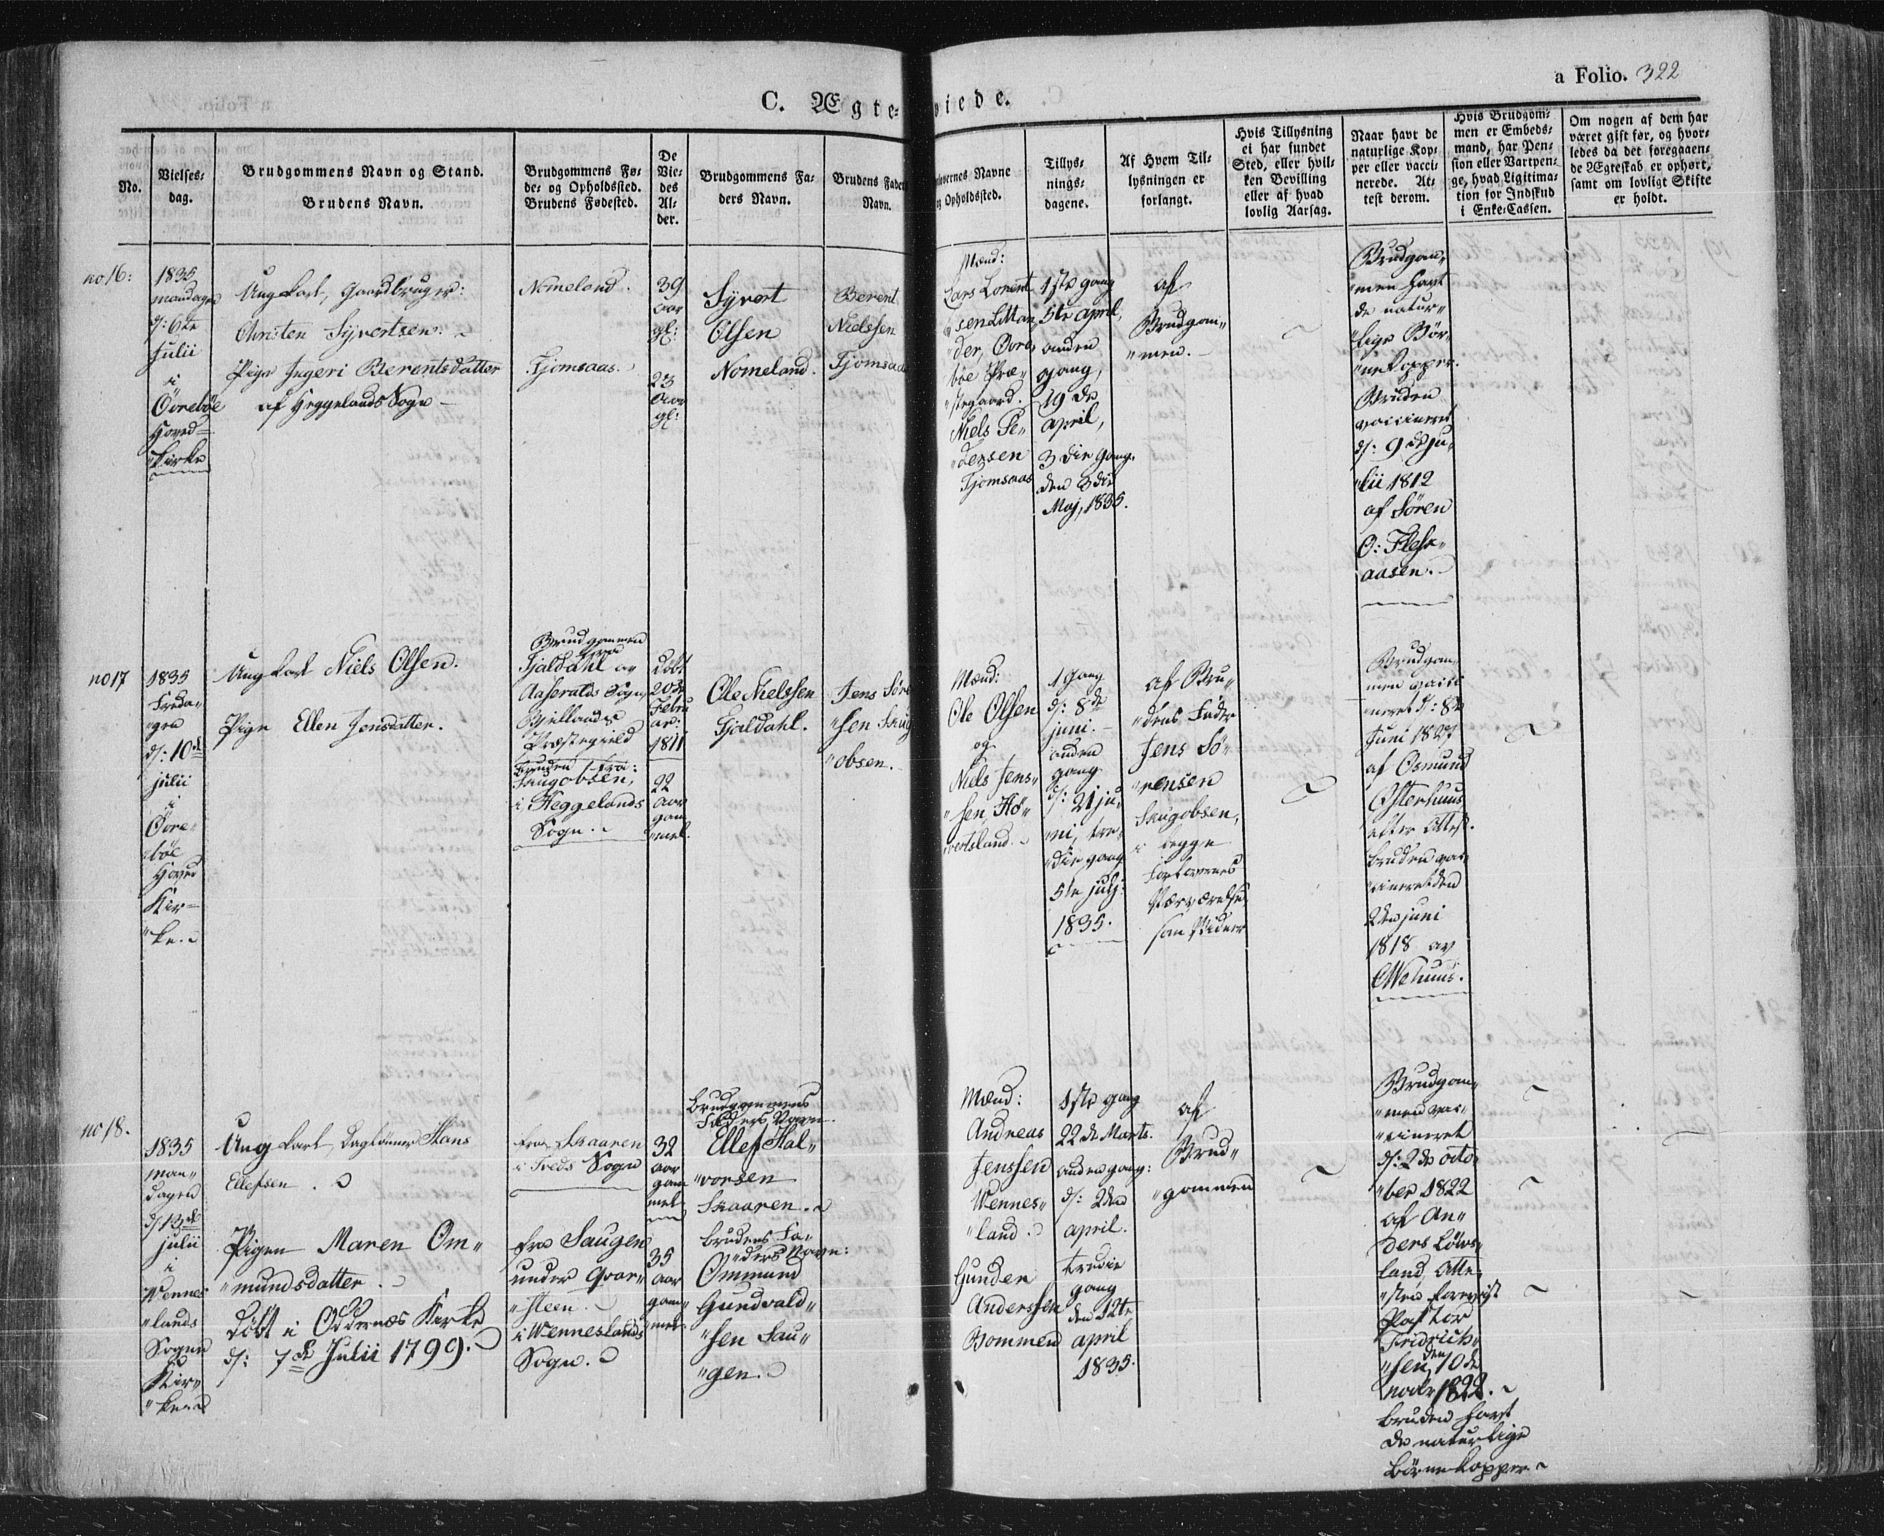 a Folio. 322
C. Ægte-viede.
No.
Vielses-
dag.
Brudgommens Navn og Stand.
Brudens Navn.
Brudgommens Fø-
de- og Opholdssted.
Brudens Fødested.
De
Vie-
des
Al-
der.
Brudgommens Fa-
ders Navn.
Brudens Faders
Navn.
Forlovernes Navne
og Opholdssted.
Tillys-
nings-
dagene.
Af Hvem Til-
lysningen er
forlangt.
Hvis Tillysning
ei har fundet
Sted, eller hvil-
ken Bevilling
eller af hvad
lovlig Aarsag.
Naar havt de
naturlige Kop-
per eller vacci-
nerede. At-
test derom.
Hvis Brudgom-
men er Embeds-
mand, har Pen-
sion eller Vartpen-
ge, hvad Ligitima-
tion for Indskud
i Enke-Cassen.
Om nogen af dem har
været gift før, og hvor-
ledes da det foregaaen-
de Ægteskab er ophørt,
samt om lovligt Skifte
er holdt.
no 16:
1835
mandagen
d: 6te
Julii
i
Övreböe
Hoved-
"kirke
Ungkarl, Gaardbruger:
Christen Syvertsen.
Pige Ingeri Berentsdatter
af Heggelands Sogn
Nomeland.
Tjomsaas.
39
aar
gl:
23
Aar
gl:
Syvert
Olsen
Nomeland.
Berent
Nielssen
Tjomsaas
Mænd:
Lars Lorent
"sen
"der, Övre
böe Præ-
"stegaard.
Niels Pe-
"dersen
Tjomsaas
1ste gang
5te april,
anden
gang,
19de
april,
3die gang.
den 3die
Maj, 1835.
af
Brudgom-
"men.
Brudgom-
"men havt
de natur-
lige Bør-
"nekopper.
Bruden
vaccineret
d: 9de ju-
"lii 1812
af Sören
O: Flesk-
aasen.
no 17
1835
Freda-
gen
d: 10de
julii
i
Övre-
böe
Hoved
Kir-
"ke.
Ungkarl Niels Olsen.
Pige Ellen Jensdatter.
Brudgommen
fra
Fjaldahl av
Aaseralds Sogn,
Bjellands
Præstegield
Bruden fra:
Skugobsen,
i Heggelands
Sogn.
döbt
20de
Febru
ar:
1811
22
Aar
gam
mel.
Ole Nielssen
Fjaldahl.
Jens Söre
"sen Skug
"obsen.
Mænd:
Ole Olsen
og
Niels Jens-
"sen, Ho-
"vertsland.
1 Gang
d: 8de
juni.
anden
gang
d: 21 ju-
ni, tre-
"die gang
5te julj:
1835.
af Bru-
"dens Fader
Jens Sö-
"rensen
Skugobsen,
i begge
Forlovernes
Nærværelse
som Vidner
Brudgom-
men vacci
neret d: 8de
Juni 1827
af Osmund
Østerhuus
efter Attest.
bruden vac-
"cineret den
2den juni
1818 av
Wehuus.
no 18.
1835
man-
dagen
d 13de
julii
i
Vennes
"lands
Sogns
Kir-
"ke
Ungkarl, Daglönner Hans
Ellefsen.
Pigen Maren Om-
"mundsdatter.
döbt i Oddernæs Kirke
d: 7de Julii 1799.
fra Skaaren
i Tveds Sogn
fra Saugen
under Qvar-
"steen.
i Wenneslands
Sogn.
32
aar
gam
mel
35
aar
gam-
mel
brudgommens
Faders Navn
Ellef Hal-
"vorsen
Skaaren.
brudens Fa-
"ders Navn:
Ommund
Gundvald-
"sen Sau-
"gen.
Mænd:
Andreas
Jenssen
Wennes-
"land.
Gunder
Anderssen
Bommen
1ste gang
22de Marts.
anden gang:
d: 2den
april.
tredie
gang
den 12te
april
1835.
af
Brud-
"gommen
Brudgom-
"men vac-
"cineret
d: 2de octo-
"ber 1822
af An-
ders Löws-
land, Atte-
"sten forevist
Pastor
Fridrich-
"sen den 10de
1822.
bruden havt
de naturlige
börnekopper